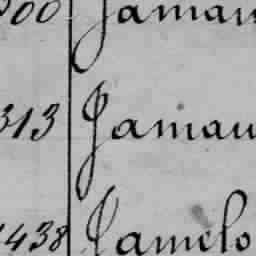 900 Jaman
313 Jamau
438 Jamelo